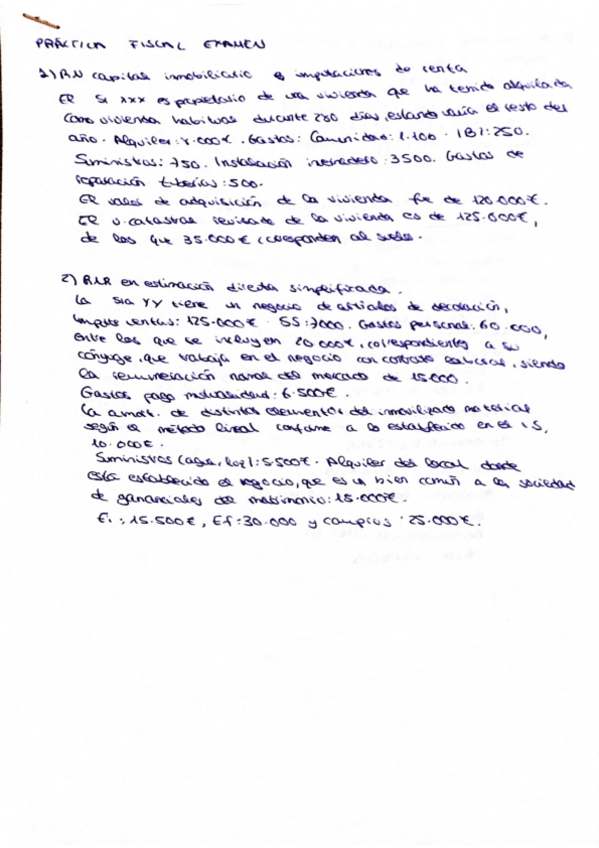 PRÁCTICA FISCAL EXAMEN
1) RN capital inmobiliario e imputaciones de renta
El Sr xxx es propietario de una vivienda que ha tenido alquilada
como vivienda habitual durante 280 días, estando vacía el resto del
año. Alquiler: 7.000€. Gastos: Comunidad: 1.100. IBI: 250.
Suministros: 750. Instalación invernadero: 3500. Gastos de
reparación tuberías: 500.
El valor de adquisición de la vivienda fue de 120.000€.
El v. catastral revisado de la vivienda es de 125.000€,
de los que 35.000€ corresponden al suelo.
2) RAE en estimación directa simplificada.
La Sra YY tiene un negocio de artículos de decoración,
importe ventas: 125.000€. SS: 7000. Gastos personal: 60.000,
entre los que se incluyen 20.000€, correspondientes a su
cónyuge, que trabaja en el negocio con contrato laboral, siendo
la remuneración normal del mercado de 15.000.
Gastos pago mutualidad: 6.500€.
La amort. de distintos elementos del inmovilizado material
según el método lineal conforme a lo establecido en el IS,
10.000€.
Suministros (agua, luz): 5.500€. Alquiler del local donde
está establecido el negocio, que es un bien común a la sociedad
de gananciales del matrimonio: 15.000€.
Ei: 15.500€, Ef: 30.000 y compras: 25.000€.